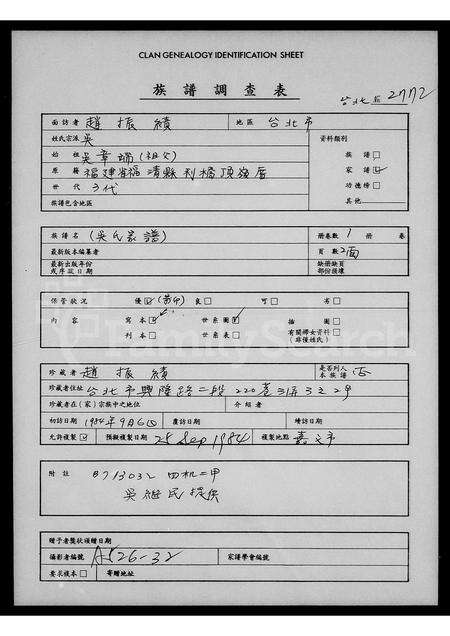 CLAN GENEALOGY IDENTIFICATION SHEET
族譜調查表
台北 2772
面訪者 趙振績 地區 台北市
姓氏宗派 吳 資料類別
始祖 吳章瑞(祖父) 族譜□
原籍 福建省福清縣 家譜☑
世代 3代 功德榜□
族譜包含地區 其他
族譜名 (吳氏家譜) 冊卷數 1 冊 卷
最新版本編纂者 頁數 2面
最新出版年份 缺冊缺頁
或序跋日期 部份損壞
保管狀況 優☑ 良□ 可□ 劣□
內容 寫本☑ 世系圖☑ 插圖□
刊本□ 世系表□ 有關婦女資料□
(非僅姓氏)
珍藏者 趙振績 是否列入
本族譜 否
珍藏者住址 台北市興隆路二段220巷31弄3之2號
珍藏者在(家)宗族中之地位 介紹者
初訪日期 1984年9月6日 覆訪日期 續訪日期
允許複製☑ 預擬複製日期 25 Sep 1984 複製地點 嘉義市
附註 B713032 四机二甲
吳繼民提供
贈予者獎狀頒贈日期
攝影者編號 A526-32 家譜學會編號
要求複本□ 寄贈地址
FamilySearch